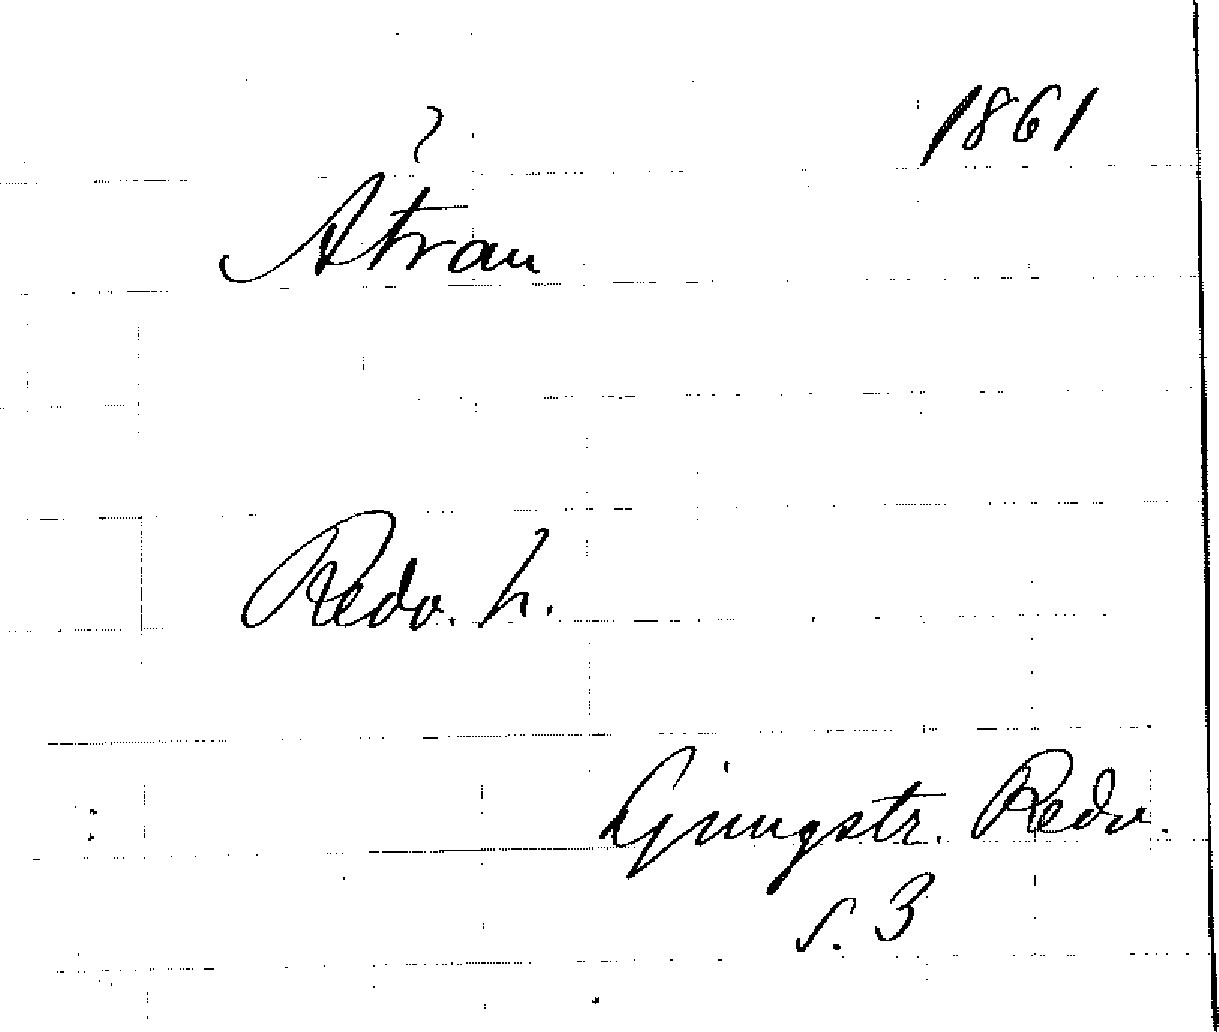 1861
Atran
Redv. h.
Ljungstr. Redv.
s. 3